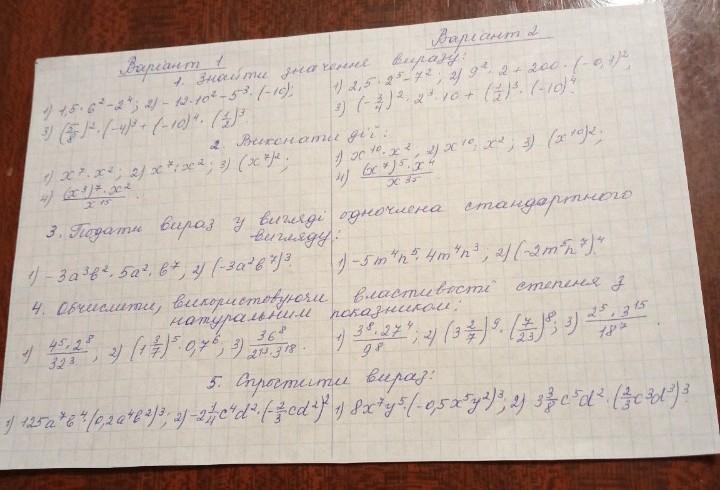 Варіант 1 Варіант 2
1. Знайти значення виразу:
1) 1,5·6²-2⁴; 2) -12·10²-5³·(-10); 1) 2,5·2⁵-7²; 2) 9²·2+200·(-0,1)²,
3) (5/8)²·(-4)³+(-10)⁴·(1/2)³. 3) (-3/4)²·2³·10+(1/2)³·(-10)⁴.
2. Виконати дії:
1) x⁷·x²; 2) x⁷:x²; 3) (x⁷)²; 1) x¹⁰·x², 2) x¹⁰:x²; 3) (x¹⁰)²;
4) (x³)⁷·x²/x¹⁵. 4) (x⁷)⁵·x⁴/x³⁵.
3. Подати вираз у вигляді одночлена стандартного
вигляду:
1) -3a³b²·5a²·b⁷, 2) (-3a²b⁷)³. 1) -5m⁴n⁵·4m⁴n³; 2) (-2m⁵n⁷)⁴
4. Обчислити, використовуючи властивості степеня з
натуральним показником:
1) 4⁵·2⁸/32³; 2) (1 3/7)⁵·0,7⁶; 3) 36⁸/2¹³·3¹⁸. 1) 3⁸·27⁴/9⁸; 2) (3 2/7)⁹·(7/23)⁸; 3) 2⁵·3¹⁵/18⁷.
5. Спростити вираз:
1) 125a⁷b⁴·(0,2a⁴b²)³; 2) -2 1/4c⁴d²·(-2/3cd²)² 1) 8x⁷y⁵·(-0,5x⁵y²)³; 2) 3 3/8c⁵d²·(2/3c³d³)³